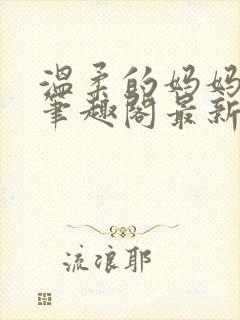 温柔的妈妈
笔趣阁最新
流浪耶